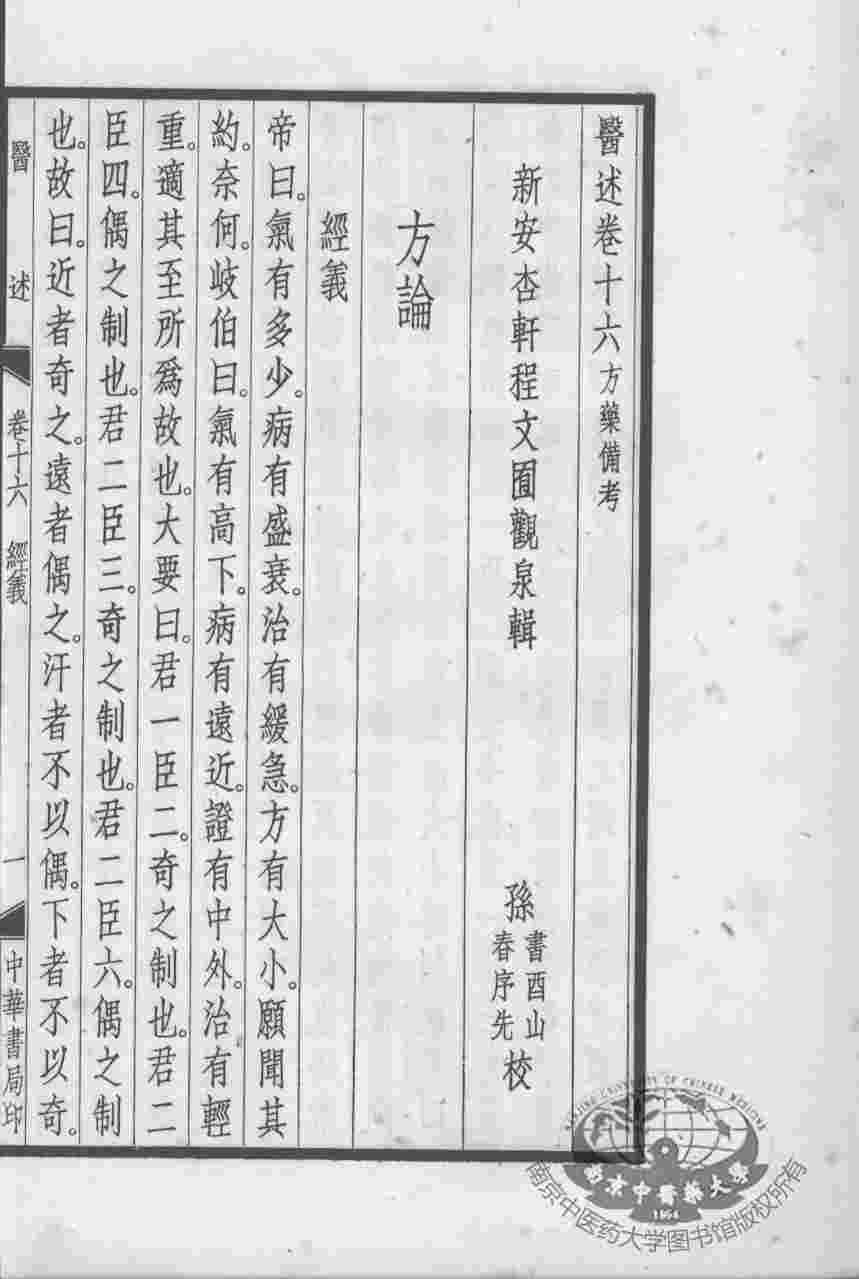 醫述卷十六方藥備考
新安杏軒程文囿觀泉輯　孫書酉山春序先校
方論
經義
帝曰。氣有多少。病有盛衰。治有緩急。方有大小。願聞其
約。奈何。岐伯曰。氣有高下。病有遠近。證有中外。治有輕
重。適其至所爲故也。大要曰。君一臣二。奇之制也。君二
臣四。偶之制也。君二臣三。奇之制也。君二臣六。偶之制
也。故曰。近者奇之。遠者偶之。汗者不以偶。下者不以奇。
醫述　卷十六　經義　一　中華書局印
NANJING UNIVERSITY OF CHINESE MEDICINE
南京中醫藥大學
1954
南京中医药大学图书馆版权所有